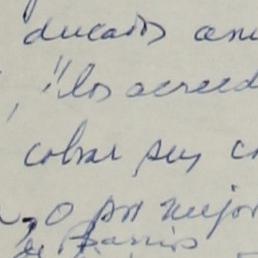 ducados
"los acreed
cobrar sus c
o por mejor
de Barrios